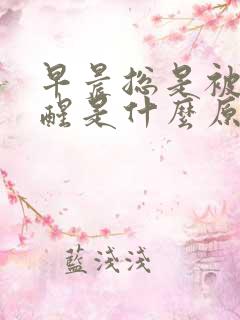 早晨总是被
醒是什麼原
藍淺淺